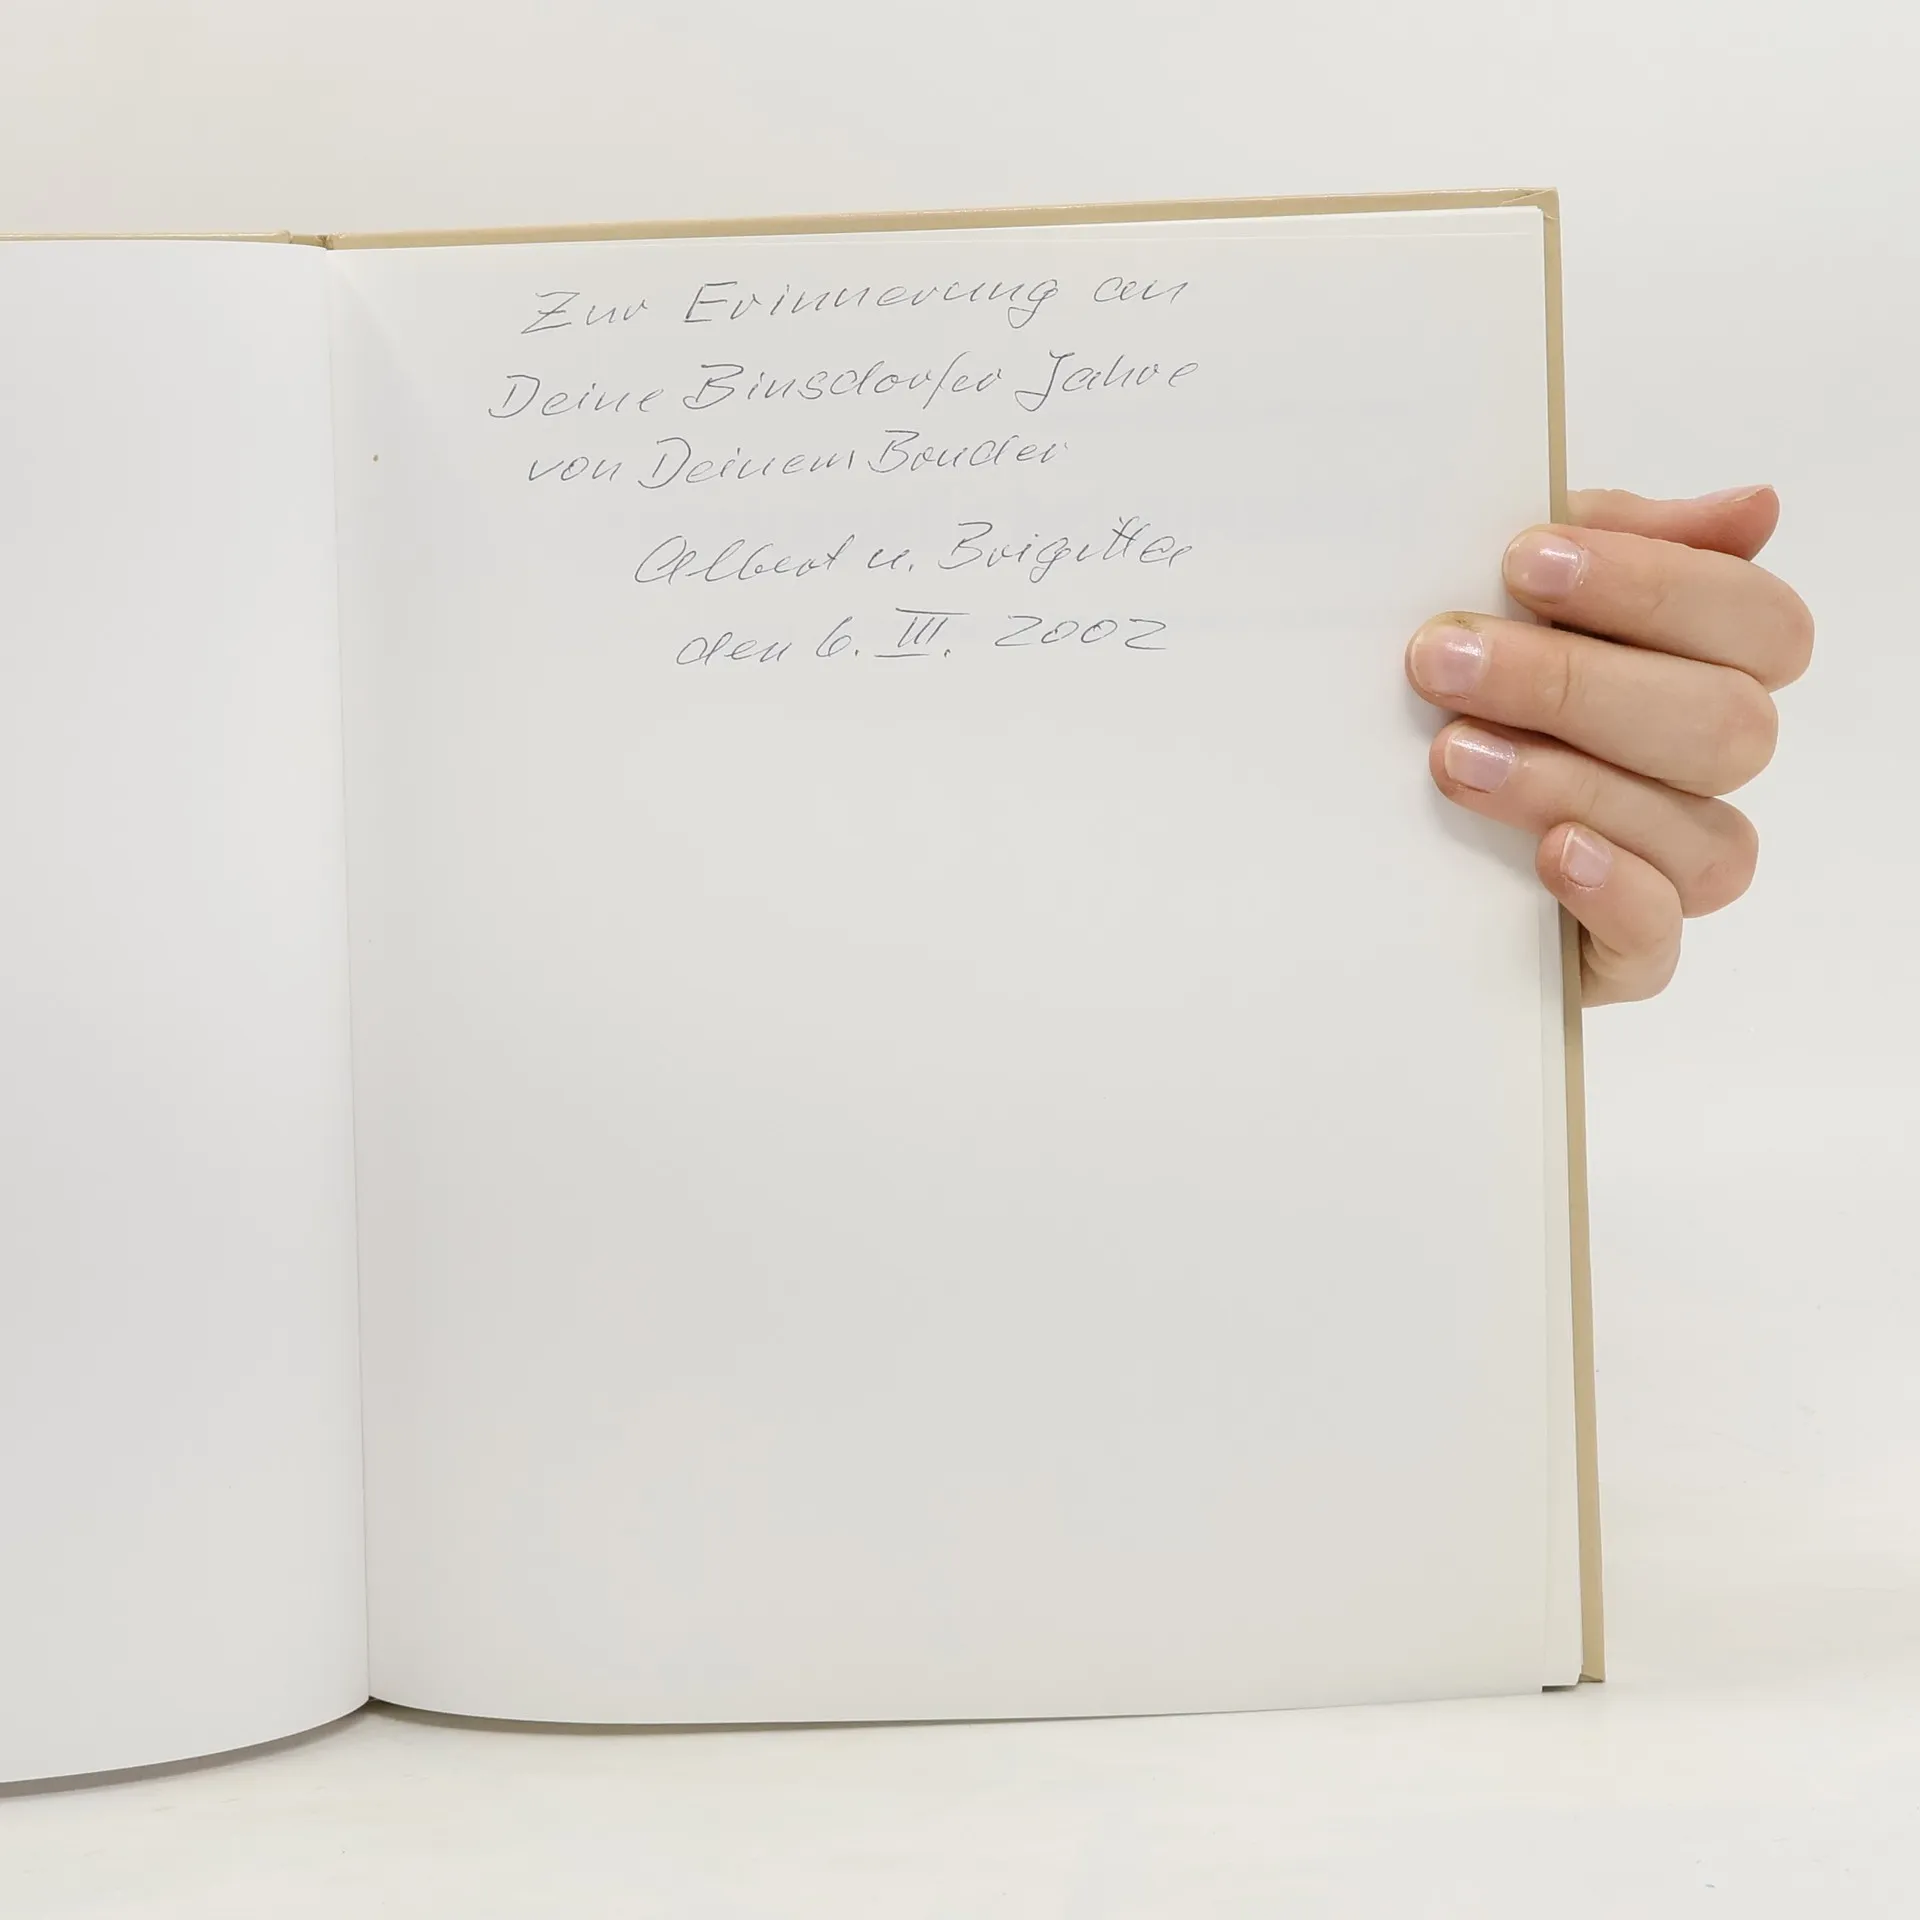 Zur Erinnerung an
Deine Binsdorfer Jahre
von Deinem Bruder
Albert u. Brigitte
den 6. III. 2002